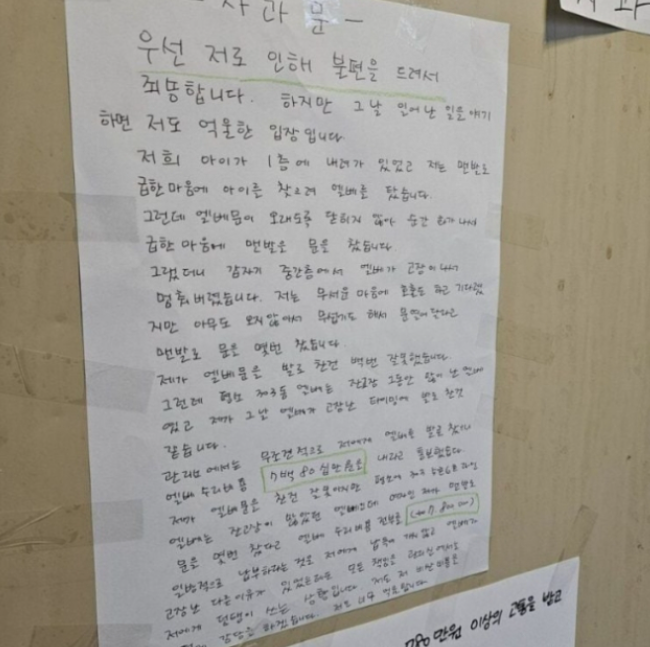 - 사 과 문 -
우선 저로 인해 불편을 드려서
죄송합니다. 하지만 그날 일어난 일을 얘기
하면 저도 억울한 입장입니다.
저희 아이가 1층에 내려가 있었고 저는 맨발로
급한마음에 아이를 찾으려 엘베를 탔습니다.
그런데 엘베문이 오래도록 닫히지 않아 순간 화가나서
급한마음에 맨발로 문을 찼습니다.
그랬더니 갑자기 중간층에서 엘베가 고장이나서
멈춰버렸습니다. 저는 무서운 마음에 호출도 하고 기다렸
지만 아무도 오지않아서 무섭기도 해서 문열어달라고
맨발로 문을 몇번 찼습니다.
제가 엘베문을 발로 찬건 백번 잘못했습니다.
그런데 평소 제3동 엘베는 잔고장 그동안 많이 난 엘베
였고 제가 그날 엘베가 고장난 타이밍에 발로 찬것
같습니다.
관리소에서는 무조건적으로 저에게 엘베를 발로 찼으니
엘베 수리비용 7백80십만원을 내라고 통보했습니다.
제가 엘베문을 찬건 잘못이지만 평소에
엘베는 잔고장이 많았던 엘베인데 제가 맨발로
문을 몇번 찼다고 엘베 수리비용 전부를
일방적으로 납부하라는것은 저에게 납득이 가지 않고 엘베가
고장난 다른이유가 있었을텐데 모든 책임을
저에게 덤탱이 쓰는 상황입니다. 저도
780만원 이상의 고통을 받고